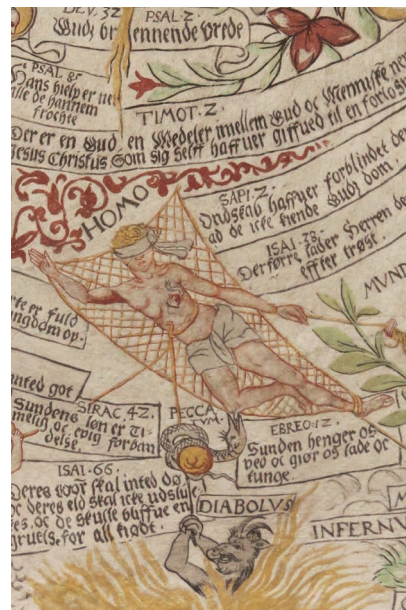 DEV. 32
Gudz brennende vrede
PSAL. 2.
PSAL 8
Hans hielp er
alle de hannem
frochte
TIMOT. 2.
Der er en Gud, en Medeler, mellem Gud oc Menniske
Jesus Christus Som sig selff haffuer giffued til en
HOMO
SAPI. 2.
Ondskab haffuer forblindet
ad de icke kiende Gudz dom.
ISAI. 28.
Derforre lader Herren
effter trøst.
er fuld
MVND
inted got
SIRAC 42.
Sundens løn er
oc evig
delse.
PECCA
TVM.
EBREO: 12.
Sunden henger os
ved oc giør os lade oc
tunge.
ISAI. 66.
Deres skal inted dø,
deres eld skal icke
oc de skulle bliffue en
gruels. for all kiødt.
DIABOLVS
INFERNV